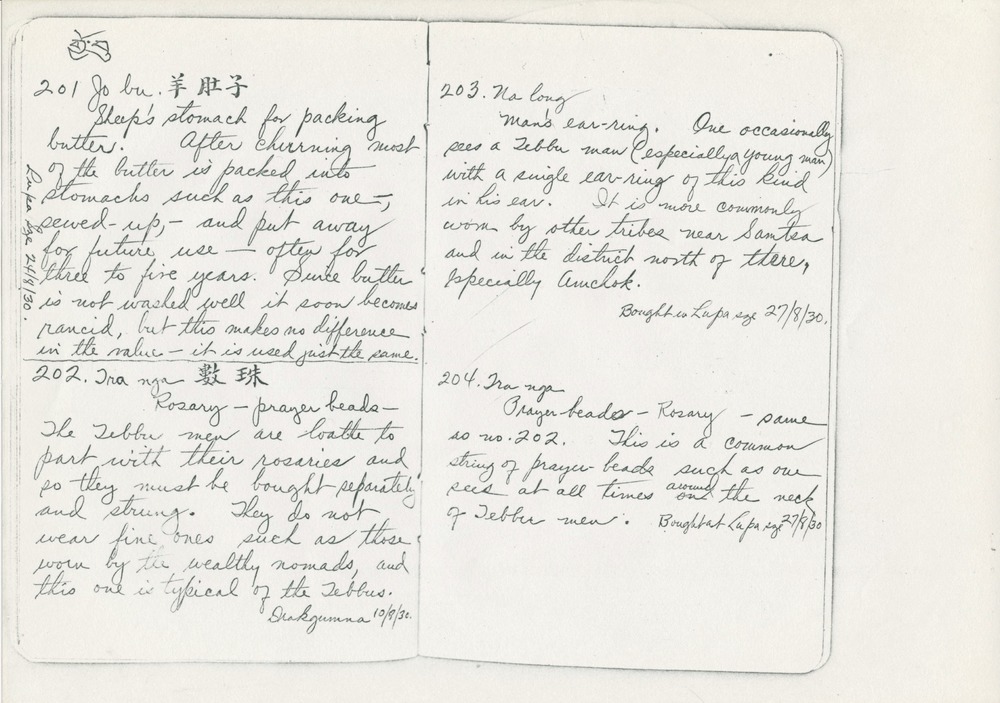 201 Jo bu. 羊肚子
Sheep's stomach for packing
butter. After churning most
of the butter is packed into
stomachs such as this one –,
sewed-up, – and put away
for future use — often for
three to five years. Since butter
is not washed well it soon becomes
rancid, but this makes no difference
in the value – it is used just the same.
Lupa sge 24/8/30.
202. Tra nga 數珠
Rosary – prayer beads –
The Tebbu men are loathe to
part with their rosaries and
so they must be bought separately
and strung. They do not
wear fine ones such as those
worn by the wealthy nomads, and
this one is typical of the Tebbus.
Drakgumna 10/8/30.
203. Na long
Man's ear-ring. One occasionally
sees a Tebbu man (especially a young man)
with a single ear-ring of this kind
in his ear. It is more commonly
worn by other tribes near Samtsa
and in the district north of there,
especially Amchok.
Bought in Lupa sge 27/8/30.
204. Tra nga
Prayer beads – Rosary – same
as no. 202. This is a common
string of prayer-beads such as one
sees at all times around the neck
of Tebbu men. Bought at Lupa sge 27/8/30